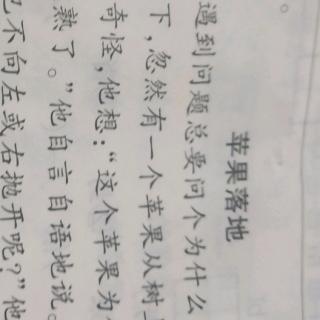 。
苹果落地
遇到问题总要问个为什么
下，忽然有一个苹果从树上
奇怪，他想：“这个苹果为
熟了。”他自言自语地说。
也不向左或右抛开呢？”他